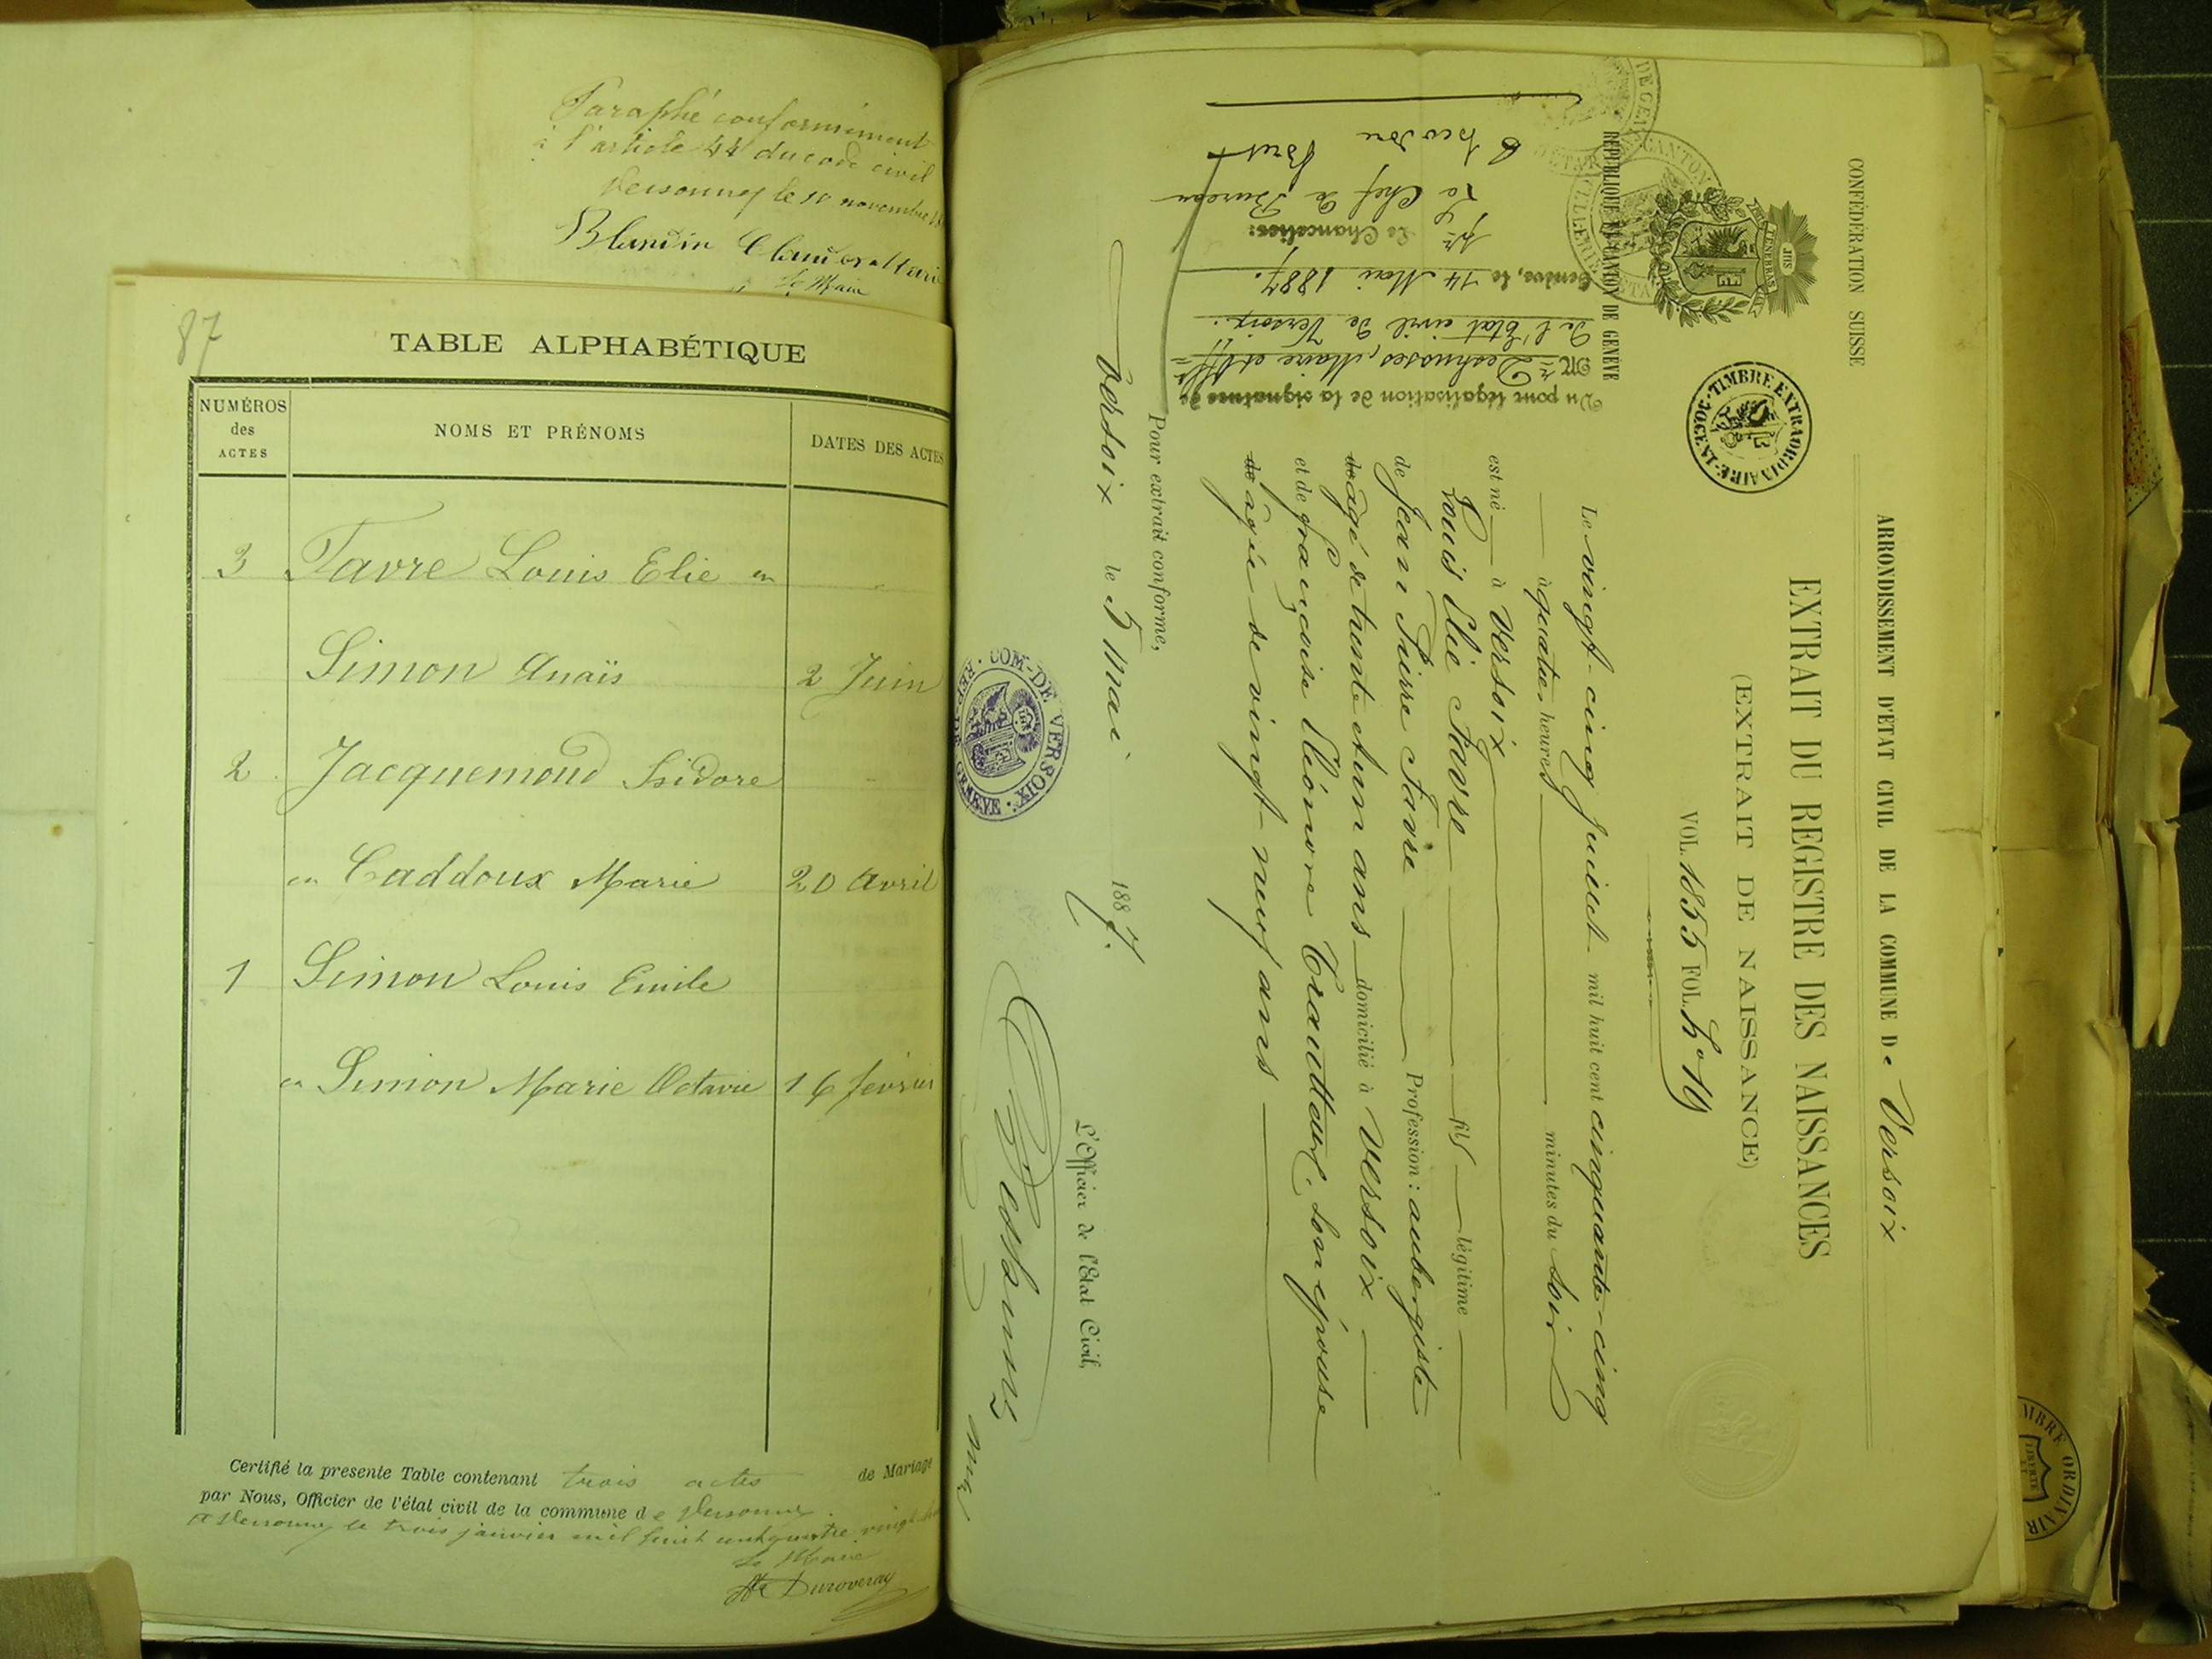 Paraphé conformément
à l'article 44 du code civil
Versonnex le 10 novembre
Blandin Claude Marie
le Maire
87
TABLE ALPHABÉTIQUE
NUMÉROS des ACTES
NOMS ET PRÉNOMS
DATES DES ACTES
3 Favre Louis Elie en
Simon Anaïs 2 Juin
2 Jacquemoud Isidore
en Caddoux Marie 20 Avril
1 Simon Louis Emile
en Simon Marie Octavie 16 février
Certifié la presente Table contenant trois actes de Mariage
par Nous, Officier de l'état civil de la commune de Versonnex.
A Versonnex le trois janvier mil huit cent quatre vingt
Le Maire
Duroveray
CONFÉDÉRATION SUISSE
RÉPUBLIQUE ET CANTON DE GENÈVE
POST TENEBRAS LUX
JHS
TIMBRE EXTRAORDINAIRE
ARRONDISSEMENT D'ÉTAT CIVIL DE LA COMMUNE De Versoix
EXTRAIT DU REGISTRE DES NAISSANCES
(EXTRAIT DE NAISSANCE)
VOL. 1855 FOL.
Le vingt-cinq juillet mil huit cent cinquante-cinq
à quatre heures minutes du soir
est né à Versoix
Louis Elie Favre fils légitime
de Jean Pierre Favre Profession: aubergiste
de âgé de trente et un ans domicilié à Versoix
et de Françoise Eléonore son épouse
de âgée de vingt-neuf ans
Pour extrait conforme,
Versoix le 5 Mai 1887.
L'Officier de l'Etat Civil,
COM. DE VERSOIX
RÉP. DE GENÈVE
Vu pour légalisation de la signature de
Mr Deshusses, Maire et Offr
de l'Etat civil de Versoix.
Genève, le 14 Mai 1887.
pr Le Chancelier:
Le Chef de Bureau